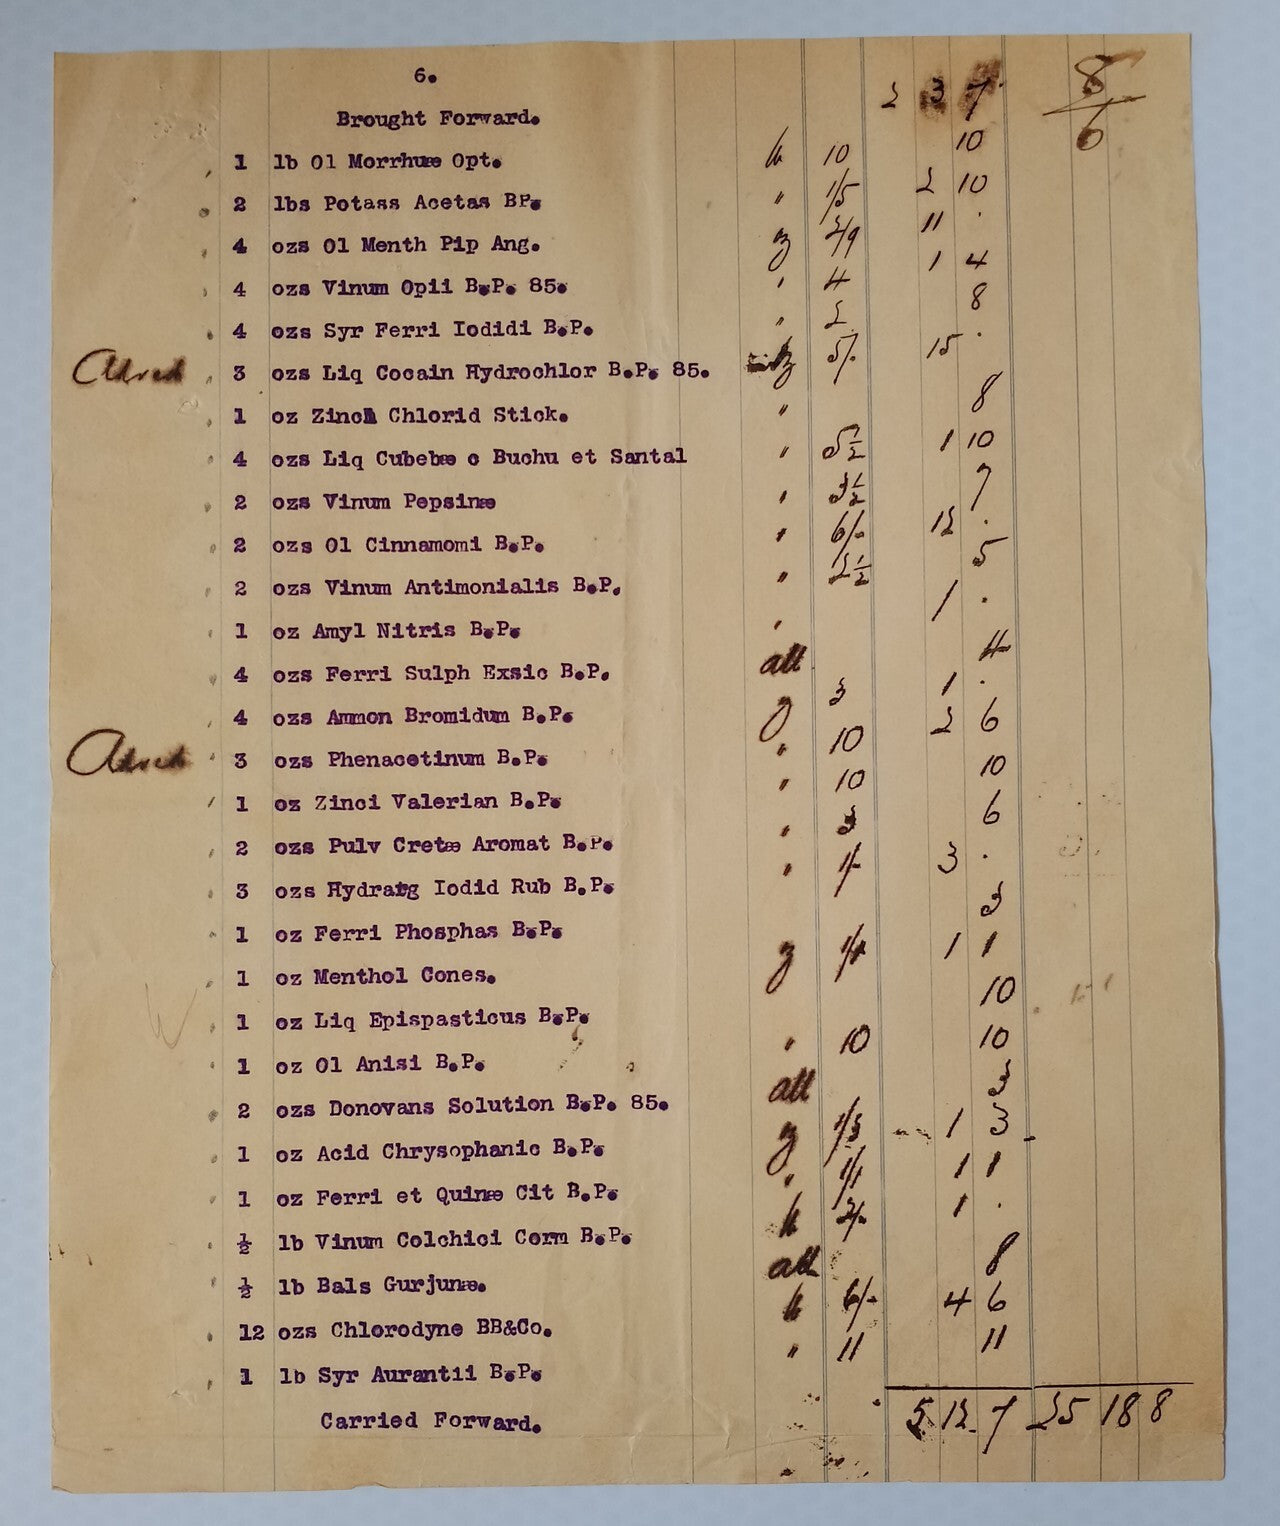 6.
Brought Forward. 2 3 7 8/6
1 lb Ol Morrhuæ Opt. lb 10 10
2 lbs Potass Acetas BP. " 1/5 2 10
4 ozs Ol Menth Pip Ang. z 2/9 11 .
4 ozs Vinum Opii B.P. 85. " 4 1 4
4 ozs Syr Ferri Iodidi B.P. " 2 8
3 ozs Liq Cocain Hydrochlor B.P. 85. z 5/. 15 .
1 oz Zinci Chlorid Stick. " 8
4 ozs Liq Cubebæ c Buchu et Santal " 5½ 1 10
2 ozs Vinum Pepsinæ " 3½ 7
2 ozs Ol Cinnamomi B.P. " 6/. 12 .
2 ozs Vinum Antimonialis B.P. " 2½ 5
1 oz Amyl Nitris B.P. " 1 .
4 ozs Ferri Sulph Exsic B.P. all 4
4 ozs Ammon Bromidum B.P. z 3 1 .
3 ozs Phenacetinum B.P. " 10 2 6
1 oz Zinci Valerian B.P. " 10 10
2 ozs Pulv Cretæ Aromat B.P. " 3 6
3 ozs Hydrarg Iodid Rub B.P. " 1/- 3 .
1 oz Ferri Phosphas B.P. 3
1 oz Menthol Cones. z 1/1 1 1
1 oz Liq Epispasticus B.P. 10
1 oz Ol Anisi B.P. " 10 10
2 ozs Donovans Solution B.P. 85. all 3
1 oz Acid Chrysophanic B.P. z 1/3 1 3
1 oz Ferri et Quinæ Cit B.P. " 1/1 1 1
½ lb Vinum Colchici Corm B.P. lb 2/. 1 .
½ lb Bals Gurjunæ. all 8
12 ozs Chlorodyne BB&Co. lb 6/. 4 6
1 lb Syr Aurantii B.P. " 11 11
Carried Forward. 5 12 7 25 18 8